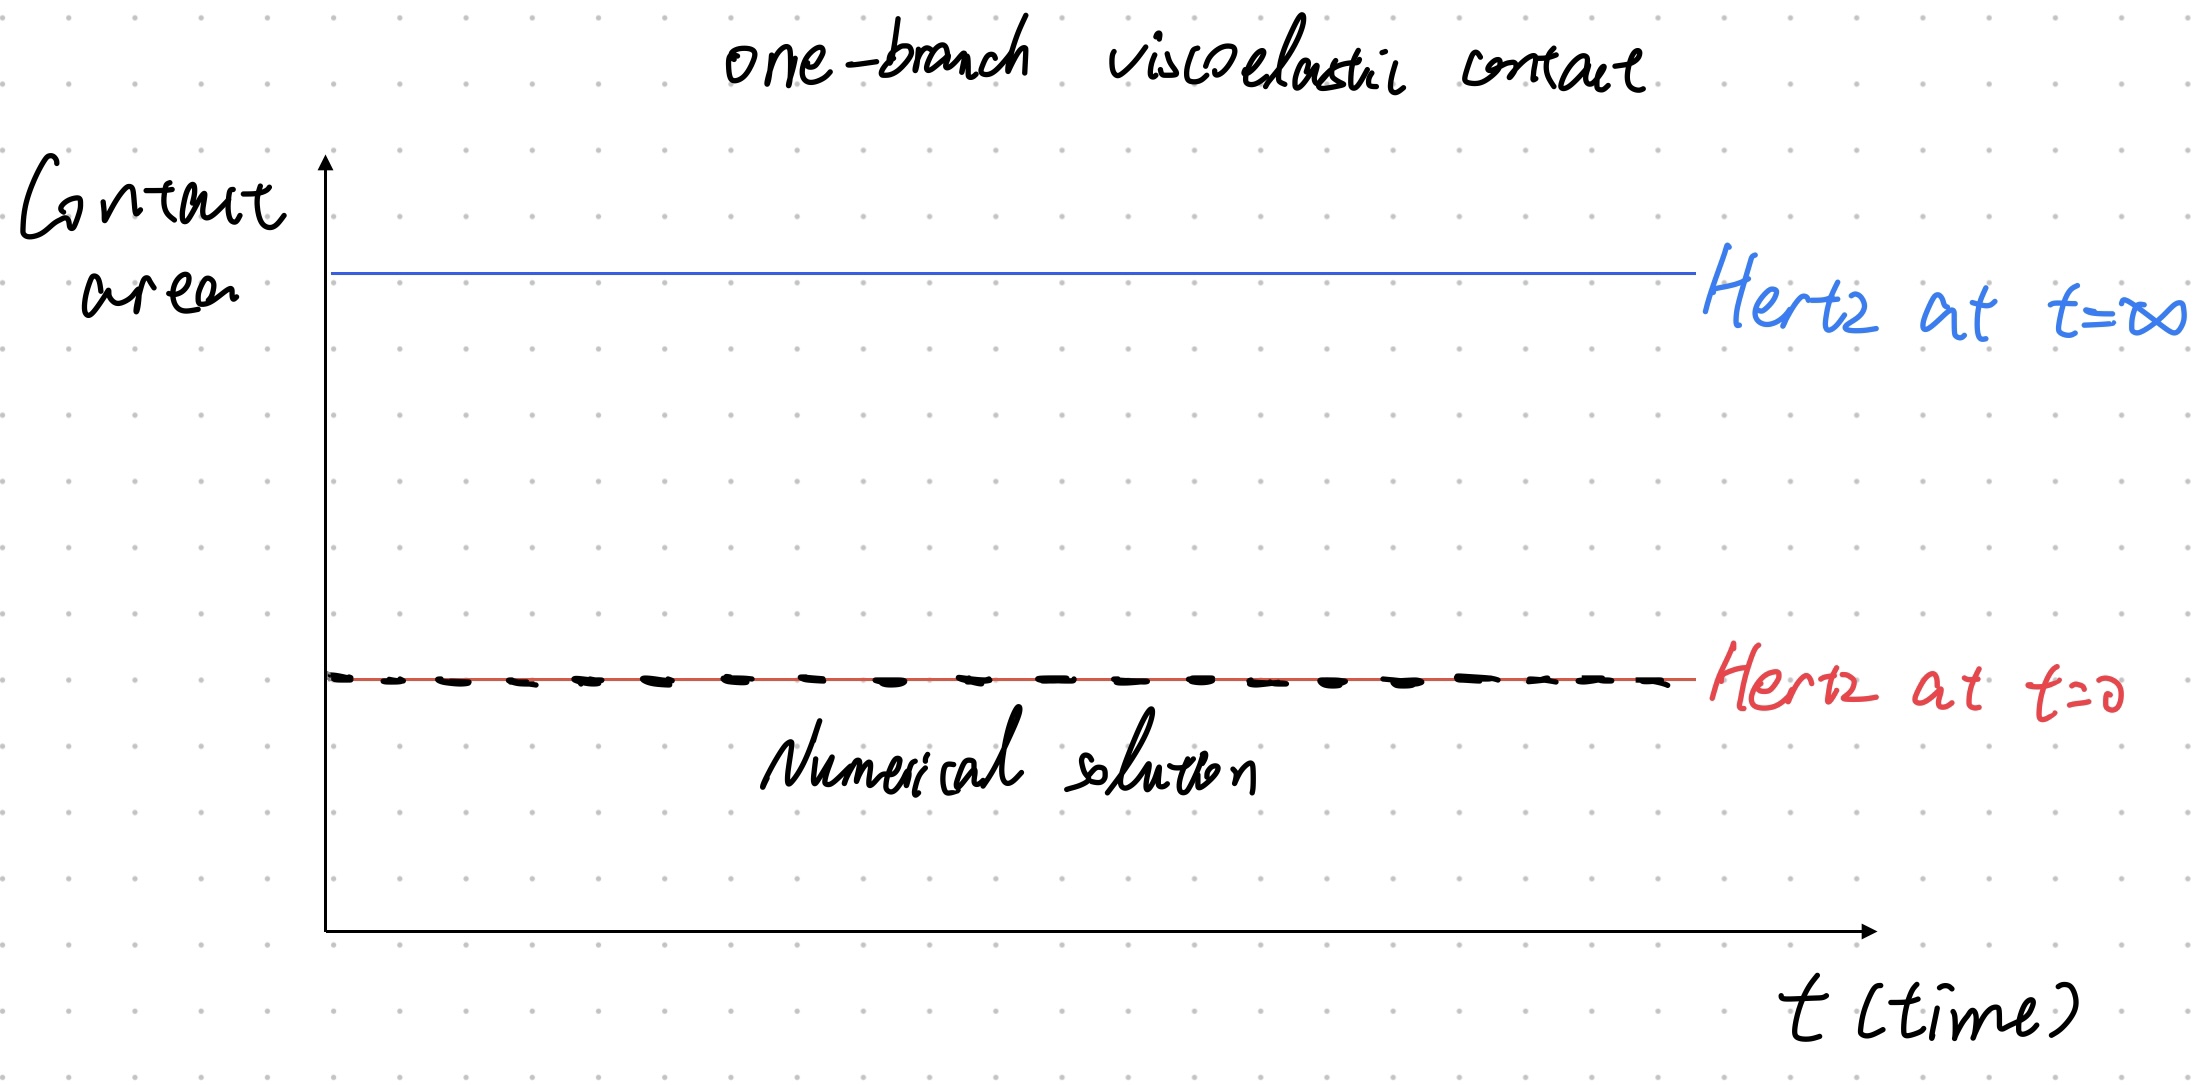 one-branch viscoelastic contact
Contact
area
Hertz at t=∞
Hertz at t=0
Numerical solution
t (time)